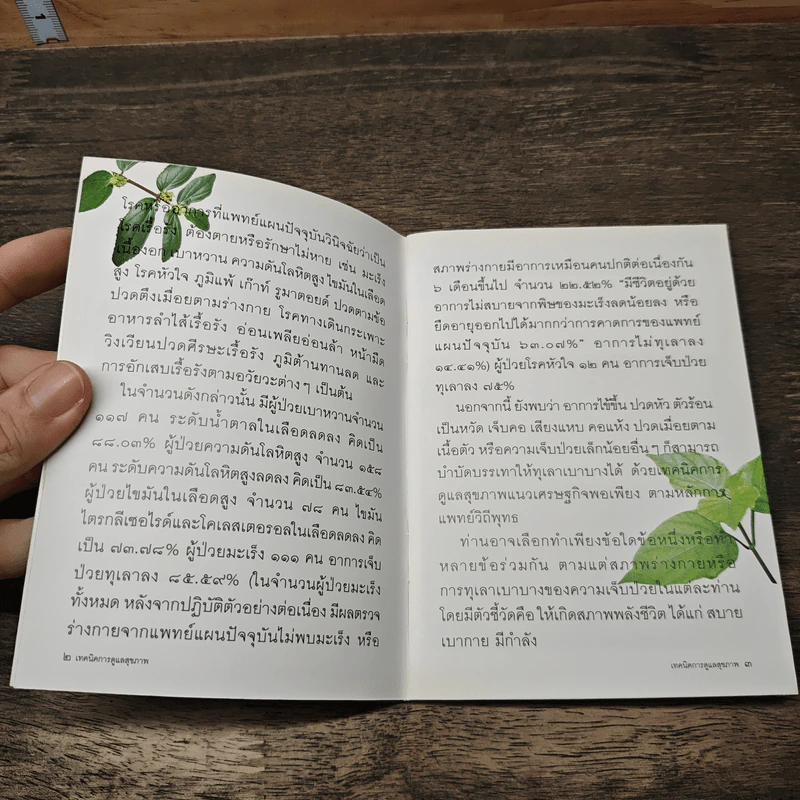 โรคหรืออาการที่แพทย์แผนปัจจุบันวินิจฉัยว่าเป็น
โรคเรื้อรัง ต้องตายหรือรักษาไม่หาย เช่น มะเร็ง
เนื้องอก เบาหวาน ความดันโลหิตสูง ไขมันในเลือด
สูง โรคหัวใจ ภูมิแพ้ เก๊าท์ รูมาตอยด์ ปวดตามข้อ
ปวดตึงเมื่อยตามร่างกาย โรคทางเดินกระเพาะ
อาหารลำไส้เรื้อรัง อ่อนเพลียอ่อนล้า หน้ามืด
วิงเวียนปวดศีรษะเรื้อรัง ภูมิต้านทานลด และ
การอักเสบเรื้อรังตามอวัยวะต่างๆ เป็นต้น
ในจำนวนดังกล่าวนั้น มีผู้ป่วยเบาหวานจำนวน
๑๑๗ คน ระดับน้ำตาลในเลือดลดลง คิดเป็น
๘๘.๐๓% ผู้ป่วยความดันโลหิตสูง จำนวน ๑๕๘
คน ระดับความดันโลหิตสูงลดลง คิดเป็น ๘๓.๕๔%
ผู้ป่วยไขมันในเลือดสูง จำนวน ๗๘ คน ไขมัน
ไตรกลีเซอไรด์และโคเลสเตอรอลในเลือดลดลง คิด
เป็น ๗๓.๗๘% ผู้ป่วยมะเร็ง ๑๑๑ คน อาการเจ็บ
ป่วยทุเลาลง ๘๕.๕๙% (ในจำนวนผู้ป่วยมะเร็ง
ทั้งหมด หลังจากปฏิบัติตัวอย่างต่อเนื่อง มีผลตรวจ
ร่างกายจากแพทย์แผนปัจจุบันไม่พบมะเร็ง หรือ
๒ เทคนิคการดูแลสุขภาพ
สภาพร่างกายมีอาการเหมือนคนปกติต่อเนื่องกัน
๖ เดือนขึ้นไป จำนวน ๒๒.๕๒% "มีชีวิตอยู่ด้วย
อาการไม่สบายจากพิษของมะเร็งลดน้อยลง หรือ
ยืดอายุออกไปได้มากกว่าการคาดการของแพทย์
แผนปัจจุบัน ๖๓.๐๗%" อาการไม่ทุเลาลง
๑๔.๔๑%) ผู้ป่วยโรคหัวใจ ๑๒ คน อาการเจ็บป่วย
ทุเลาลง ๗๕%
นอกจากนี้ ยังพบว่า อาการไข้ขึ้น ปวดหัว ตัวร้อน
เป็นหวัด เจ็บคอ เสียงแหบ คอแห้ง ปวดเมื่อยตาม
เนื้อตัว หรือความเจ็บป่วยเล็กน้อยอื่นๆ ก็สามารถ
บำบัดบรรเทาให้ทุเลาเบาบางได้ ด้วยเทคนิคการ
ดูแลสุขภาพแนวเศรษฐกิจพอเพียง ตามหลักการ
แพทย์วิถีพุทธ
ท่านอาจเลือกทำเพียงข้อใดข้อหนึ่งหรือทำ
หลายข้อร่วมกัน ตามแต่สภาพร่างกายหรือ
การทุเลาเบาบางของความเจ็บป่วยในแต่ละท่าน
โดยมีตัวชี้วัดคือ ให้เกิดสภาพพลังชีวิต ได้แก่ สบาย
เบากาย มีกำลัง
เทคนิคการดูแลสุขภาพ ๓
1